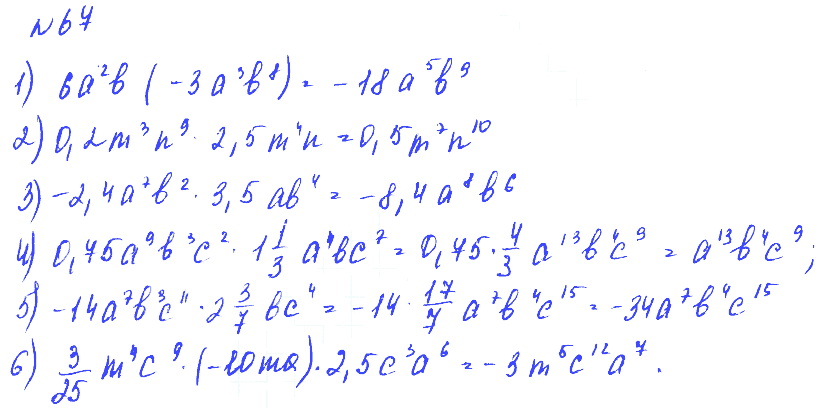 № 67
1) 6a²b (-3a³b⁸) = -18a⁵b⁹
2) 0,2m³n⁹ · 2,5m⁴n = 0,5m⁷n¹⁰
3) -2,4a⁷b² · 3,5ab⁴ = -8,4a⁸b⁶
4) 0,75a⁹b³c² · 1 1/3 a⁴bc⁷ = 0,75 · 4/3 a¹³b⁴c⁹ = a¹³b⁴c⁹;
5) -14a⁷b³c¹¹ · 2 3/7 bc⁴ = -14 · 17/7 a⁷b⁴c¹⁵ = -34a⁷b⁴c¹⁵
6) 3/25 m⁴c⁹ · (-10ma) · 2,5c³a⁶ = -3m⁵c¹²a⁷.